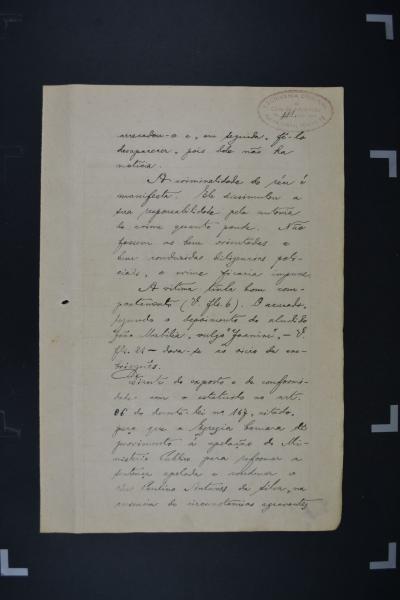 e, em seguida, fê-lo
desapparecer, pois dele não ha
noticia.
A criminalidade do réu é
manifesta. Ele dissimulou a
sua responsabilidade pela autoria
do crime quanto poude. Não
fossem as bem orientadas e
bem conduzidas diligencias poli-
ciais, o crime ficaria impune.
A vitima tinha bom com-
portamento (V. fls. 6). O acusado,
segundo o depoimento do aludido
João vulgo "Joanino", - V.
fls. 21 - dava-se ao vicio da em-
briaguês.
Diante do exposto e de conformi-
dade com o estatuido no art.
96 do decreto-lei no 167, citado,
para que a Egregia Camara dê
provimento á apelação do Mi-
nisterio Publico para reformar a
sentença apelada e condenar o
réu Paulino Antunes da Silva, na
ausencia de circunstancias agravantes